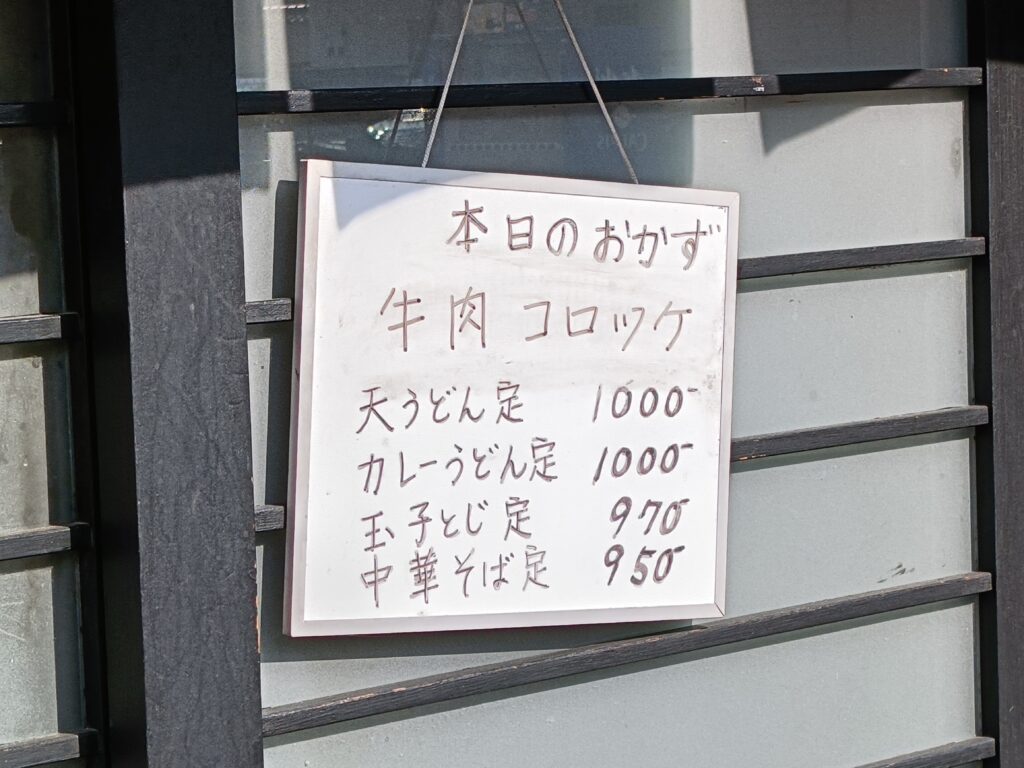 本日のおかず
牛肉コロッケ
天うどん定 1000-
カレーうどん定 1000-
玉子とじ定 970-
中華そば定 950-